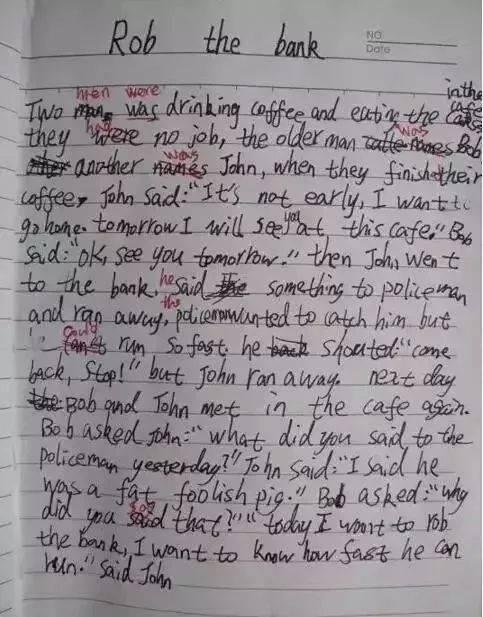 Rob the bank
NO.
Date
men were in the
Two man was drinking coffee and eating the cafe
had was
they were no job, the older man names Bob
was
another names John, when they finished their
coffee, John said:"It's not early, I want to
you
go home. tomorrow I will see at this cafe." Bob
said:"ok, see you tomorrow." then John went
he
to the bank, said something to policeman
the
and ran away, policeman wanted to catch him but
could
can't run so fast. he back shouted:"come
back, stop!" but John ran away. next day
the Bob and John met in the cafe again.
Bob asked John:"what did you said to the
policeman yesterday?" John said:"I said he
was a fat foolish pig." Bob asked:"why
say
did you said that?" "today I want to rob
the bank, I want to know how fast he can
run." said John